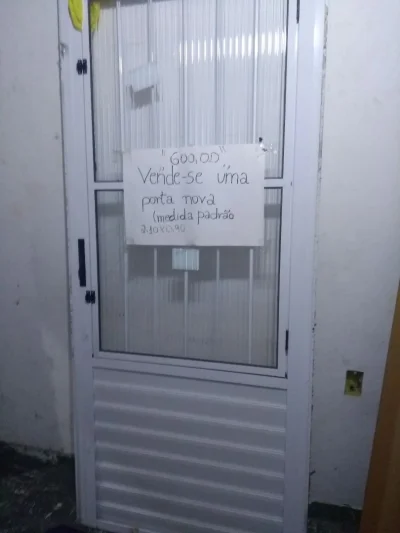 "600,00"
Vende-se uma
porta nova
(medida padrão
2,10x0,90